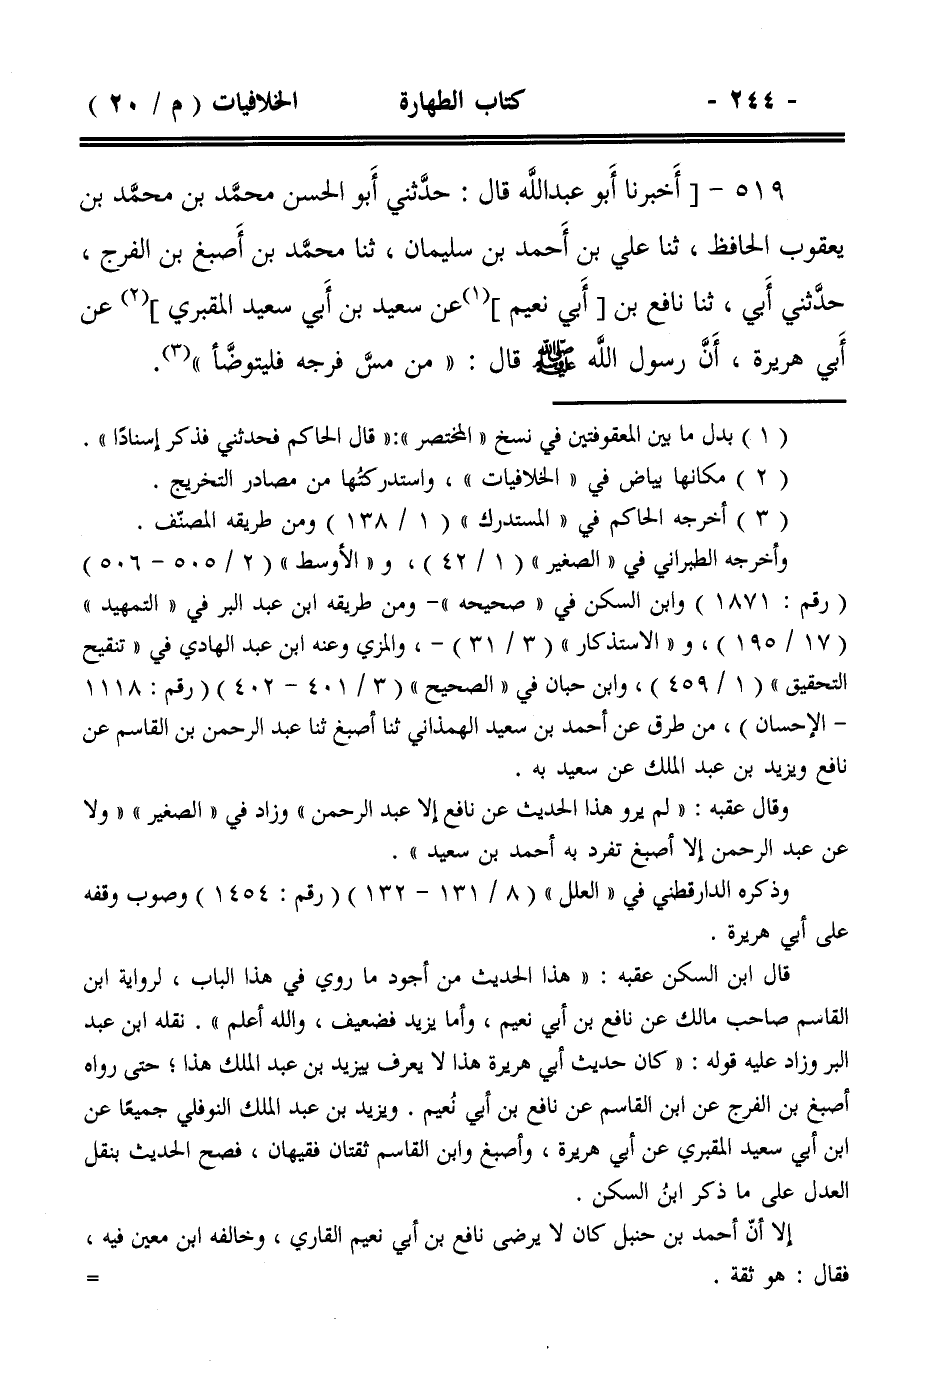 - ٢٤٤ - كتاب الطهارة الخلافيات ( م / ٢٠ )
٥١٩ - [ أَخبرنا أَبو عبداللَّه قال : حدَّثني أَبو الحسن محمَّد بن محمَّد بن
يعقوب الحافظ ، ثنا علي بن أَحمد بن سليمان ، ثنا محمَّد بن أَصبغ بن الفرج ،
حدَّثني أَبي ، ثنا نافع بن [ أَبي نعيم ](١) عن سعيد بن أَبي سعيد المقبري ](٢) عن
أَبي هريرة ، أَنَّ رسول اللَّه ﷺ قال : « من مسَّ فرجه فليتوضَّأ »(٣).
( ١ ) بدل ما بين المعقوفتين في نسخ « المختصر »:« قال الحاكم فحدثني فذكر إسنادًا » .
( ٢ ) مكانها بياض في « الخلافيات » ، واستدركتُها من مصادر التخريج .
( ٣ ) أخرجه الحاكم في « المستدرك » ( ١ / ١٣٨ ) ومن طريقه المصنّف .
وأخرجه الطبراني في « الصغير » ( ١ / ٤٢ ) ، و « الأوسط » ( ٢ / ٥٠٥ - ٥٠٦ )
( رقم : ١٨٧١ ) وابن السكن في « صحيحه »- ومن طريقه ابن عبد البر في « التمهيد »
( ١٧ / ١٩٥ ) ، و « الاستذكار » ( ٣ / ٣١ ) - ، والمزي وعنه ابن عبد الهادي في « تنقيح
التحقيق » ( ١ / ٤٥٩ ) ، وابن حبان في « الصحيح » ( ٣ / ٤٠١ - ٤٠٢ ) ( رقم : ١١١٨
- الإحسان ) ، من طرق عن أحمد بن سعيد الهمذاني ثنا أصبغ ثنا عبد الرحمن بن القاسم عن
نافع ويزيد بن عبد الملك عن سعيد به .
وقال عقبه : « لم يرو هذا الحديث عن نافع إلا عبد الرحمن » وزاد في « الصغير » « ولا
عن عبد الرحمن إلا أصبغ تفرد به أحمد بن سعيد » .
وذكره الدارقطني في « العلل » ( ٨ / ١٣١ - ١٣٢ ) ( رقم : ١٤٥٤ ) وصوب وقفه
على أبي هريرة .
قال ابن السكن عقبه : « هذا الحديث من أجود ما روي في هذا الباب ، لرواية ابن
القاسم صاحب مالك عن نافع بن أبي نعيم ، وأما يزيد فضعيف ، والله أعلم » . نقله ابن عبد
البر وزاد عليه قوله : « كان حديث أبي هريرة هذا لا يعرف بيزيد بن عبد الملك هذا ؛ حتى رواه
أصبغ بن الفرج عن ابن القاسم عن نافع بن أبي نُعيم . ويزيد بن عبد الملك النوفلي جميعًا عن
ابن أبي سعيد المقبري عن أبي هريرة ، وأصبغ وابن القاسم ثقتان فقيهان ، فصح الحديث بنقل
العدل على ما ذكر ابنُ السكن .
إلا أنّ أحمد بن حنبل كان لا يرضى نافع بن أبي نعيم القاري ، وخالفه ابن معين فيه ،
فقال : هو ثقة . =